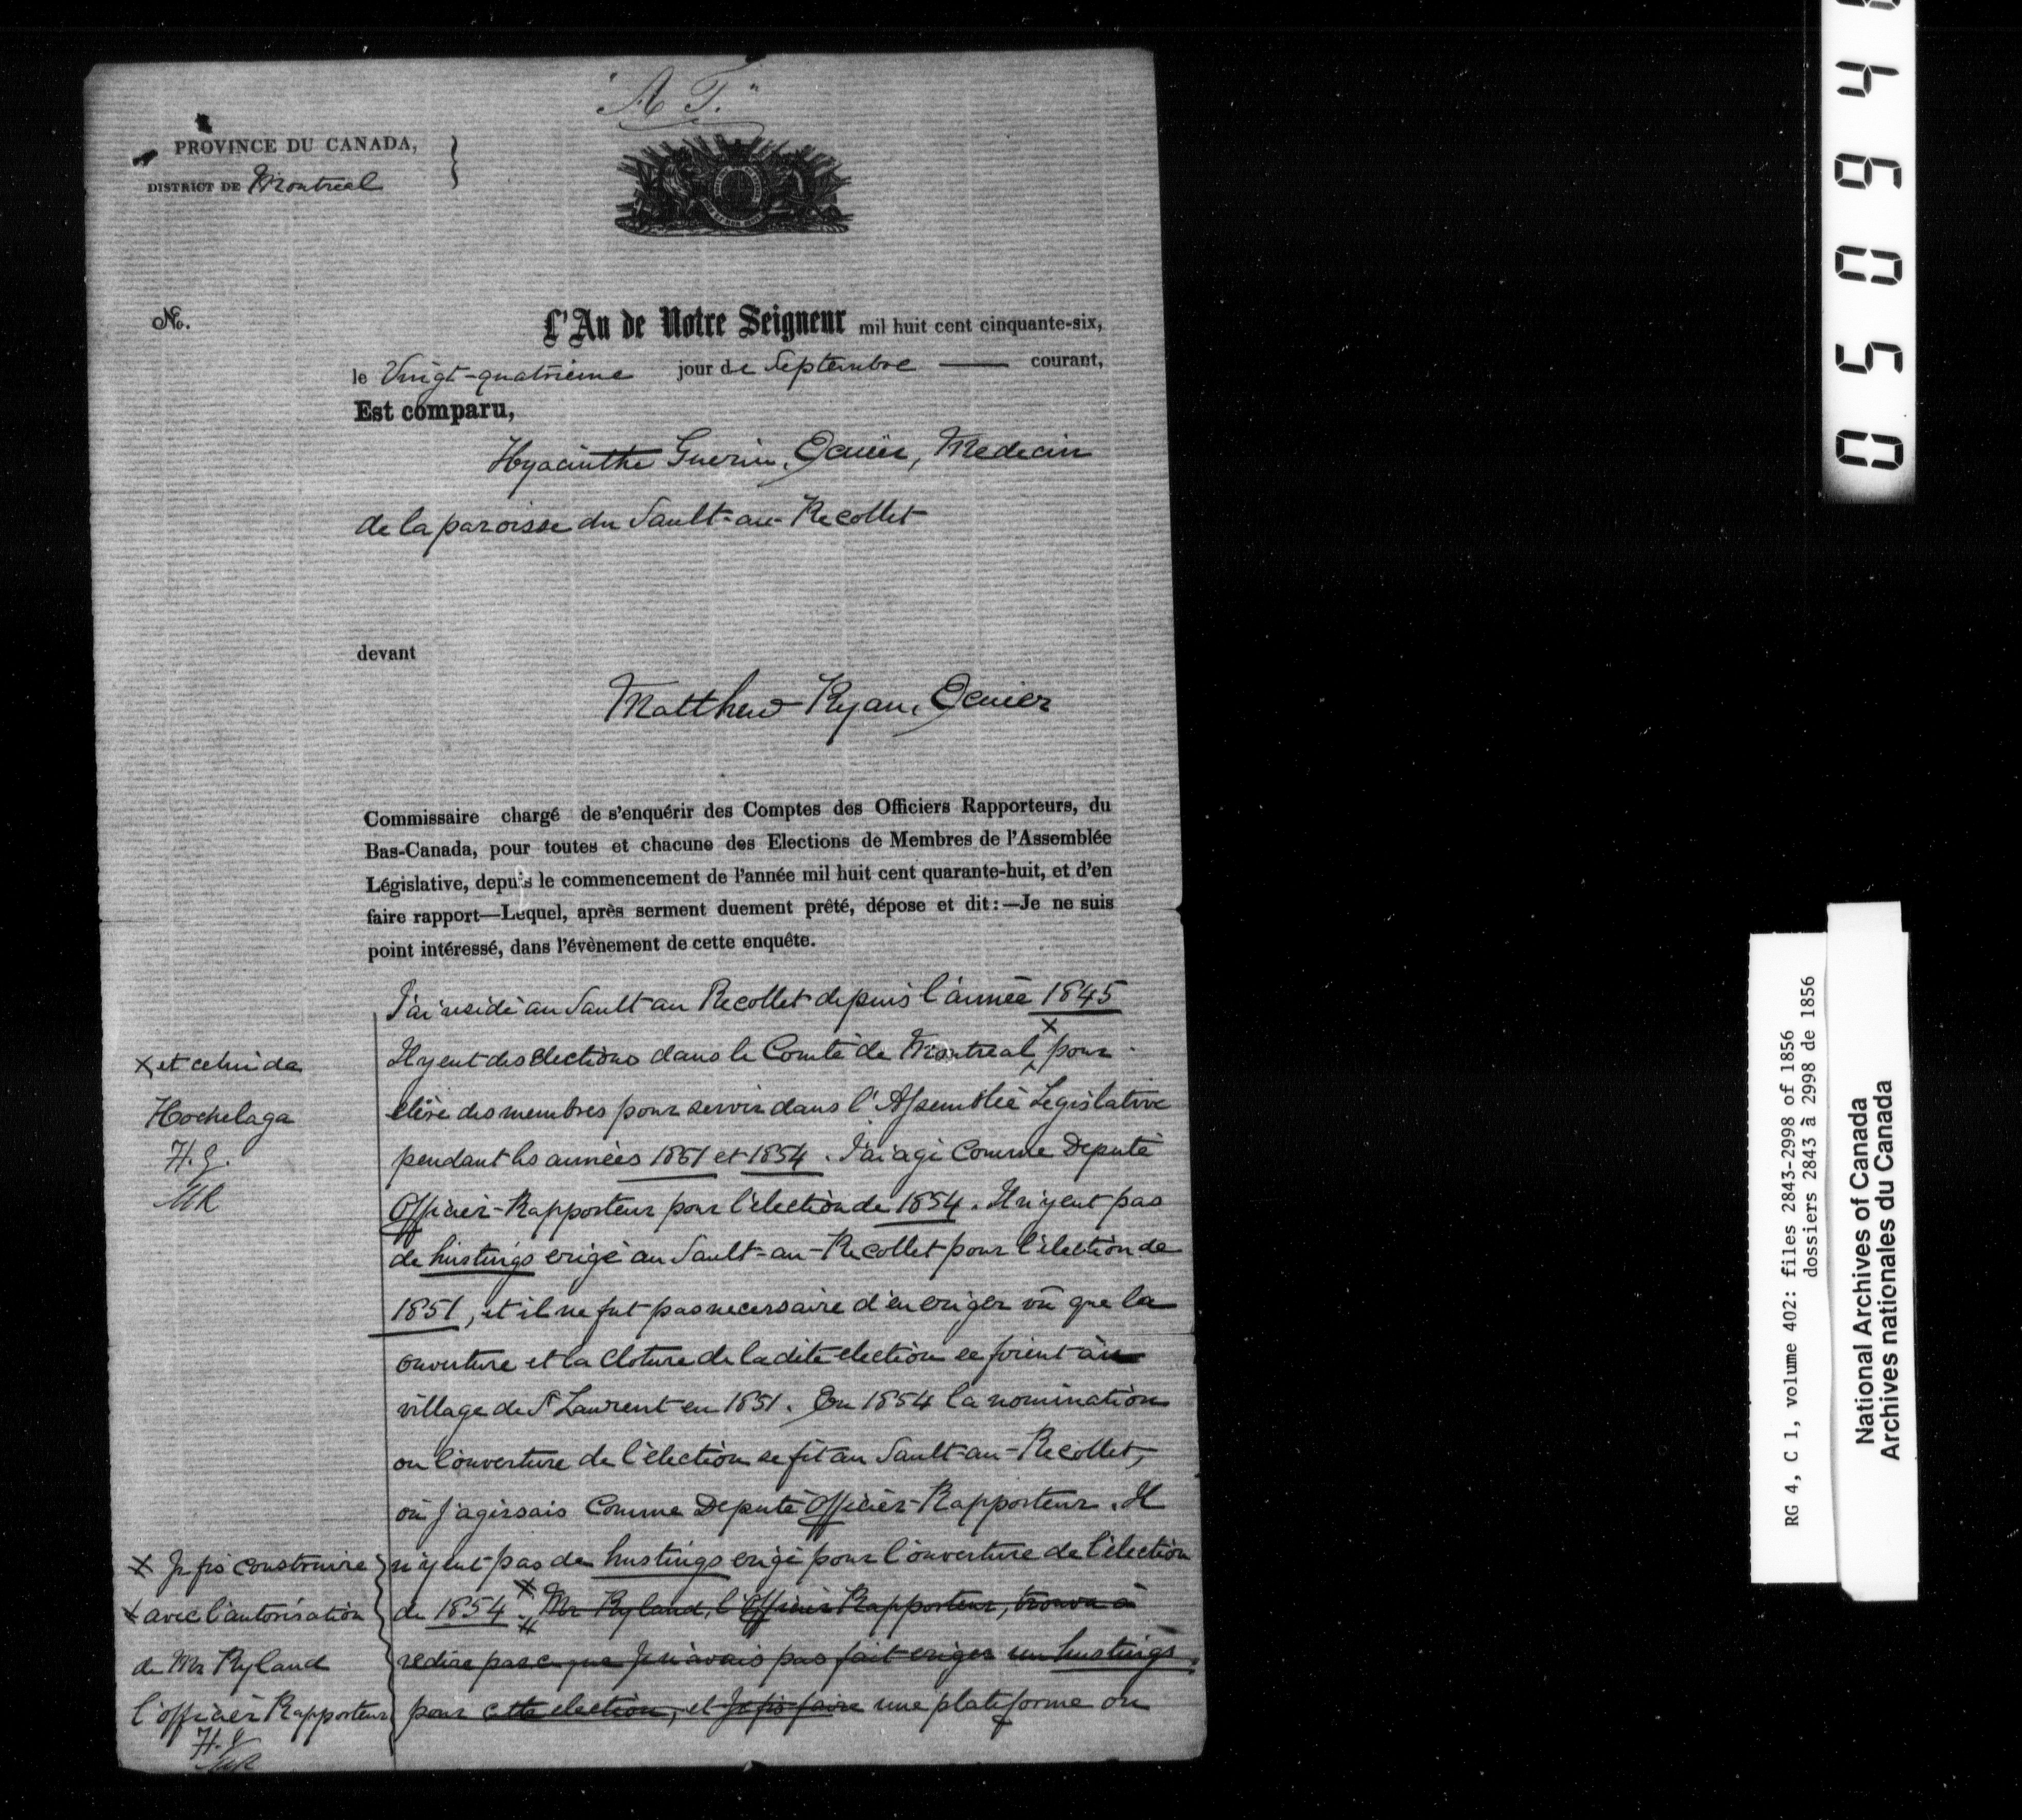 "A T."
PROVINCE DU CANADA,
DISTRICT DE Montreal
No.
L'An de Notre Seigneur mil huit cent cinquante-six,
le Vingt-quatrième jour de Septembre — courant,
Est comparu,
Hyacinthe Guerin, Ecuier, Medecin
de la paroisse du Sault-au-Recollet
devant
Matthew Ryan, Ecuier
Commissaire chargé de s'enquérir des Comptes des Officiers Rapporteurs, du
Bas-Canada, pour toutes et chacune des Elections de Membres de l'Assemblée
Législative, depuis le commencement de l'année mil huit cent quarante-huit, et d'en
faire rapport—Lequel, après serment duement prêté, dépose et dit:—Je ne suis
point intéressé, dans l'évènement de cette enquête.
J'ai residé au Sault au Recollet depuis l'année 1845
Il y eut des Elections dans le Comté de Montreal x pour
x et celui de
Hochelaga
H.G.
MR
elire des membres pour servir dans l'Assemblée Legislative
pendant les années 1851 et 1854. J'ai agi Comme Deputé
Officier-Rapporteur pour l'élection de 1854. Il n'y eut pas
de hustings erigé au Sault-au-Recollet pour l'élection de
1851, et il ne fut pas necessaire d'en eriger vû que la
ouverture et la cloture de la dite election se firent au
village de St Laurent en 1851. En 1854 la nomination
ou l'ouverture de l'élection se fit au Sault-au-Recollet,
où j'agissais Comme Deputé Officier-Rapporteur. Il
n'y eut pas de hustings erigé pour l'ouverture de l'élection
de 1854. x Mr Ryland, l'Officier Rapporteur, trouva à
redire parceque je n'avais pas fait eriger un hustings
pour cette election, et Je fis faire une plateforme ou
x Je fis construire
x avec l'autorisation
de Mr Ryland
l'officier Rapporteur
H.G.
MR
0 5 0 9 4
RG 4, C 1, volume 402: files 2843-2998 of 1856
dossiers 2843 à 2998 de 1856
National Archives of Canada
Archives nationales du Canada